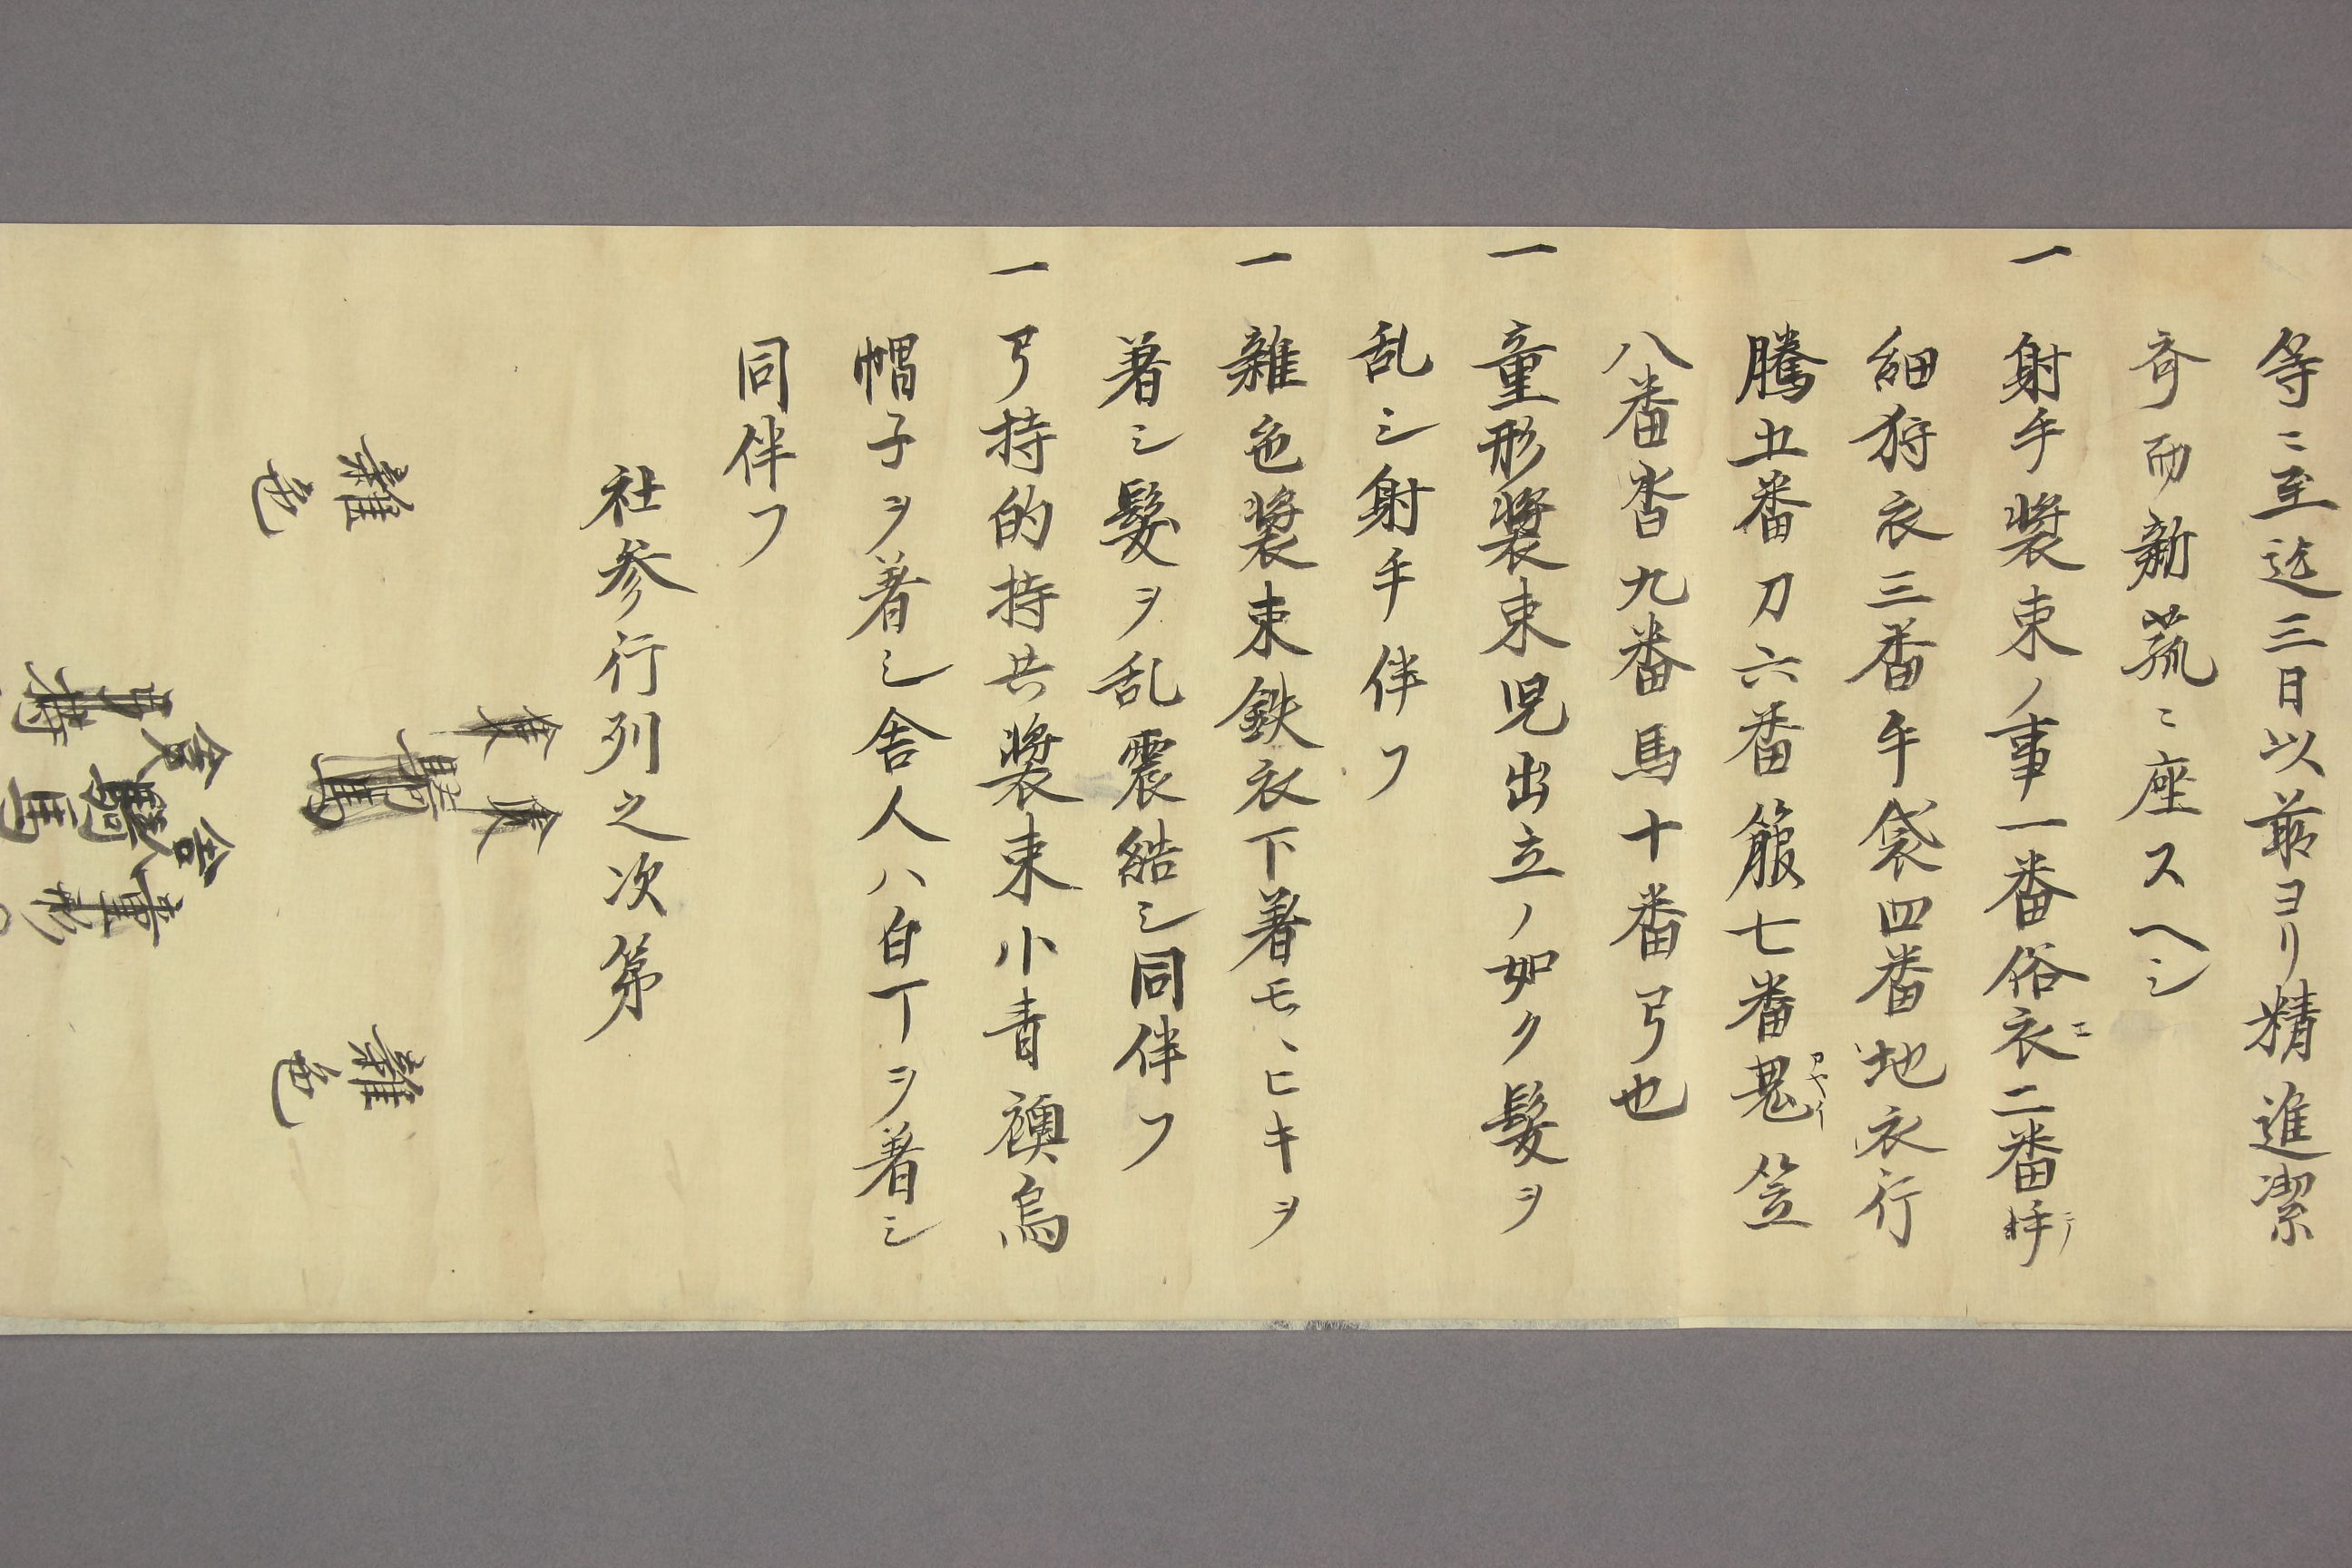 等ニ至迄三日以前ヨリ精進潔
斎而新菰ニ座スヘシ
一 射手装束ノ事一番俗衣二番
細狩衣三番弓袋四番地衣行
騰五番刀六番箙七番 笠
八番沓九番馬十番弓也
一 童形装束児出立ノ如ク髪ヲ
乱シ射手伴フ
一 雑色装束鉄衣下著モヽヒキヲ
著シ髪ヲ乱 結シ同伴フ
一 弓持的持共装束小青襖烏
帽子ヲ著シ舎人ハ白丁ヲ著シ
同伴フ
社参行列之次第
雑色
雑色
舎
童形